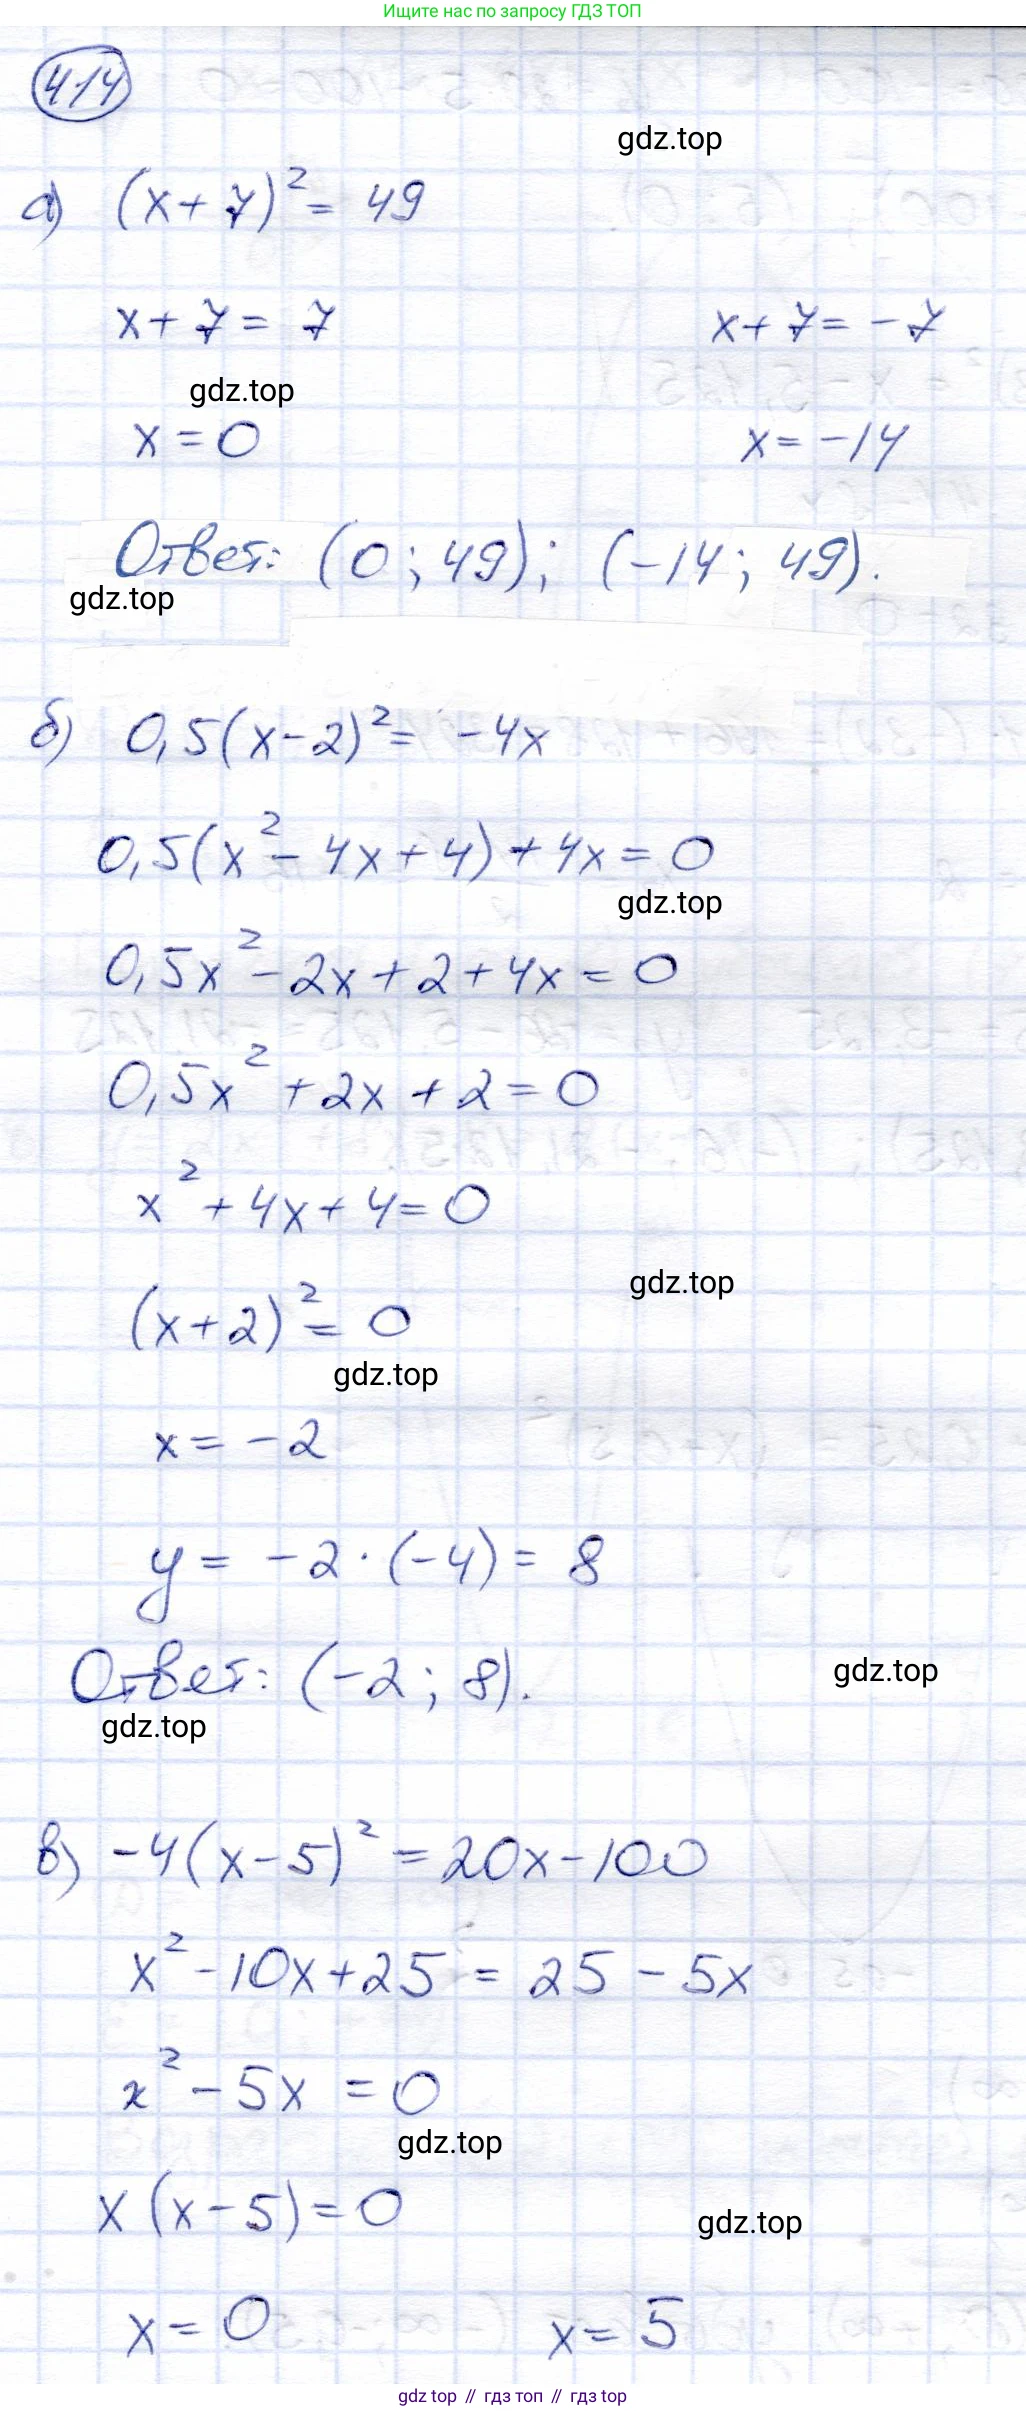 Ищите нас по запросу ГДЗ ТОП
414
gdz.top
а) (x + 7)² = 49
x + 7 = 7 x + 7 = -7
gdz.top
x = 0 x = -14
Ответ: (0; 49); (-14; 49).
gdz.top
б) 0,5(x - 2)² = -4x
0,5(x² - 4x + 4) + 4x = 0
gdz.top
0,5x² - 2x + 2 + 4x = 0
0,5x² + 2x + 2 = 0
x² + 4x + 4 = 0
gdz.top
(x + 2)² = 0
gdz.top
x = -2
y = -2 · (-4) = 8
Ответ: (-2; 8).
gdz.top
gdz.top
в) -4(x - 5)² = 20x - 100
x² - 10x + 25 = 25 - 5x
x² - 5x = 0
gdz.top
x(x - 5) = 0
gdz.top
x = 0 x = 5
gdz top // гдз топ // gdz top